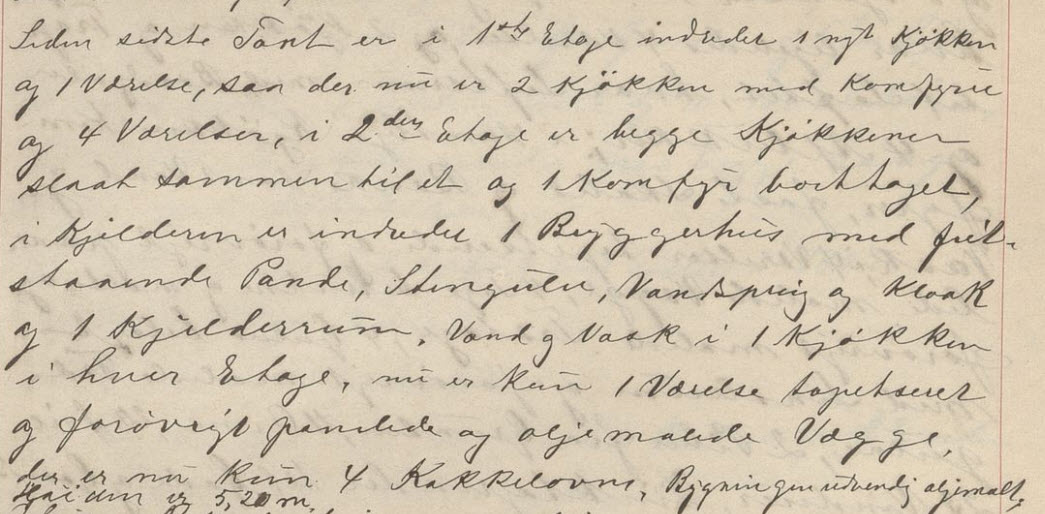 Siden sidste Taxt er i 1ste Etage indredet 1 nyt Kjøkken
og 1 Værelse, saa der nu er 2 Kjøkken med Komfyrer
og 4 Værelser, i 2den Etage er begge Kjøkkener
slaat sammen til et og 1 Komfyr borttaget,
i Kjelderen er indredet 1 Bryggerhus med frit-
staaende Pande, Stengulv, Vandspring og Kloak
og 1 Kjelderrum. Vand og Vask i 1 Kjøkken
i hver Etage, nu er kun 1 Værelse tapetseret
og forøvrigt panelede og oljemalede Vægge,
der er nu kun 4 Kakkelovne, Bygningen udvendig oljemalt,
Høiden er 5,20 m.